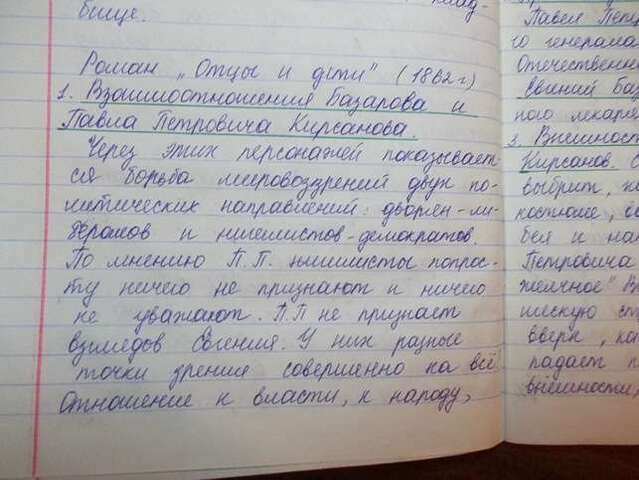 бище.
Роман "Отцы и дети" (1862 г.)
1. Взаимоотношения Базарова и
Павла Петровича Кирсанова.
Через этих персонажей показывает
ся борьба мировоззрений двух по-
литических направлений: дворян-ли-
бералов и нигилистов-демократов.
По мнению П.П. нигилисты попрос-
ту ничего не признают и ничего
не уважают. П.П не признает
взглядов Евгения. У них разные
точки зрения совершенно на всё
отношение к власти, к народу,
Павел Петр
го генерала
Отечественн
евгений Баз
ного лекаря
3. Внешност
Кирсанов.
выбрит, но
костюме,
бея и на
Петровича
желчное" В
ческую ст
вверх, на
падает
внешности,